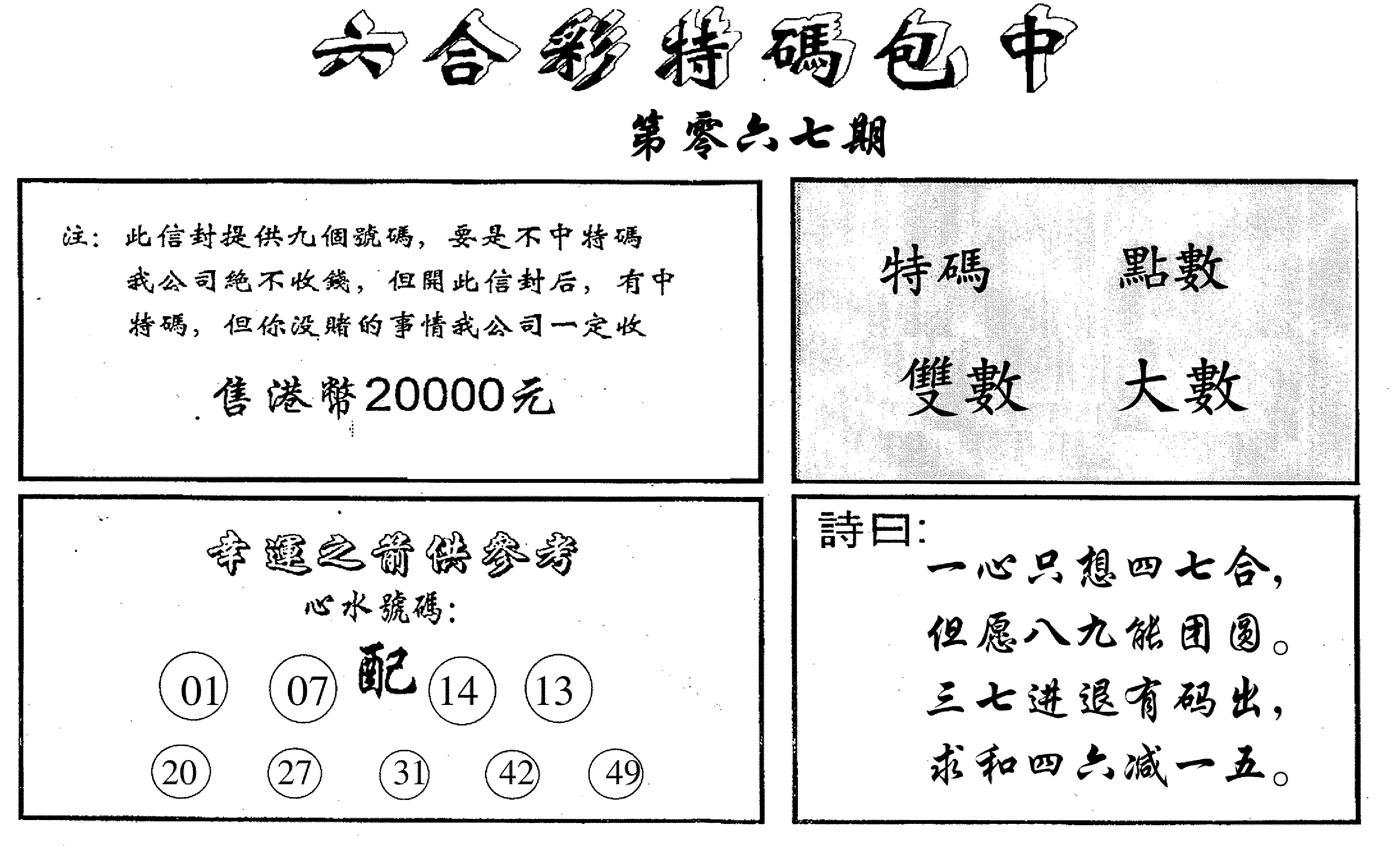 六合彩特碼包中
第零六七期
注：此信封提供九個號碼，要是不中特碼
我公司絕不收錢，但開此信封后，有中
特碼，但你没賭的事情我公司一定收
售港幣20000元
特碼 點數
雙數 大數
幸運之箭供參考
心水號碼：
01 07 配 14 13
20 27 31 42 49
詩曰：
一心只想四七合，
但愿八九能团圆。
三七进退有码出，
求和四六减一五。